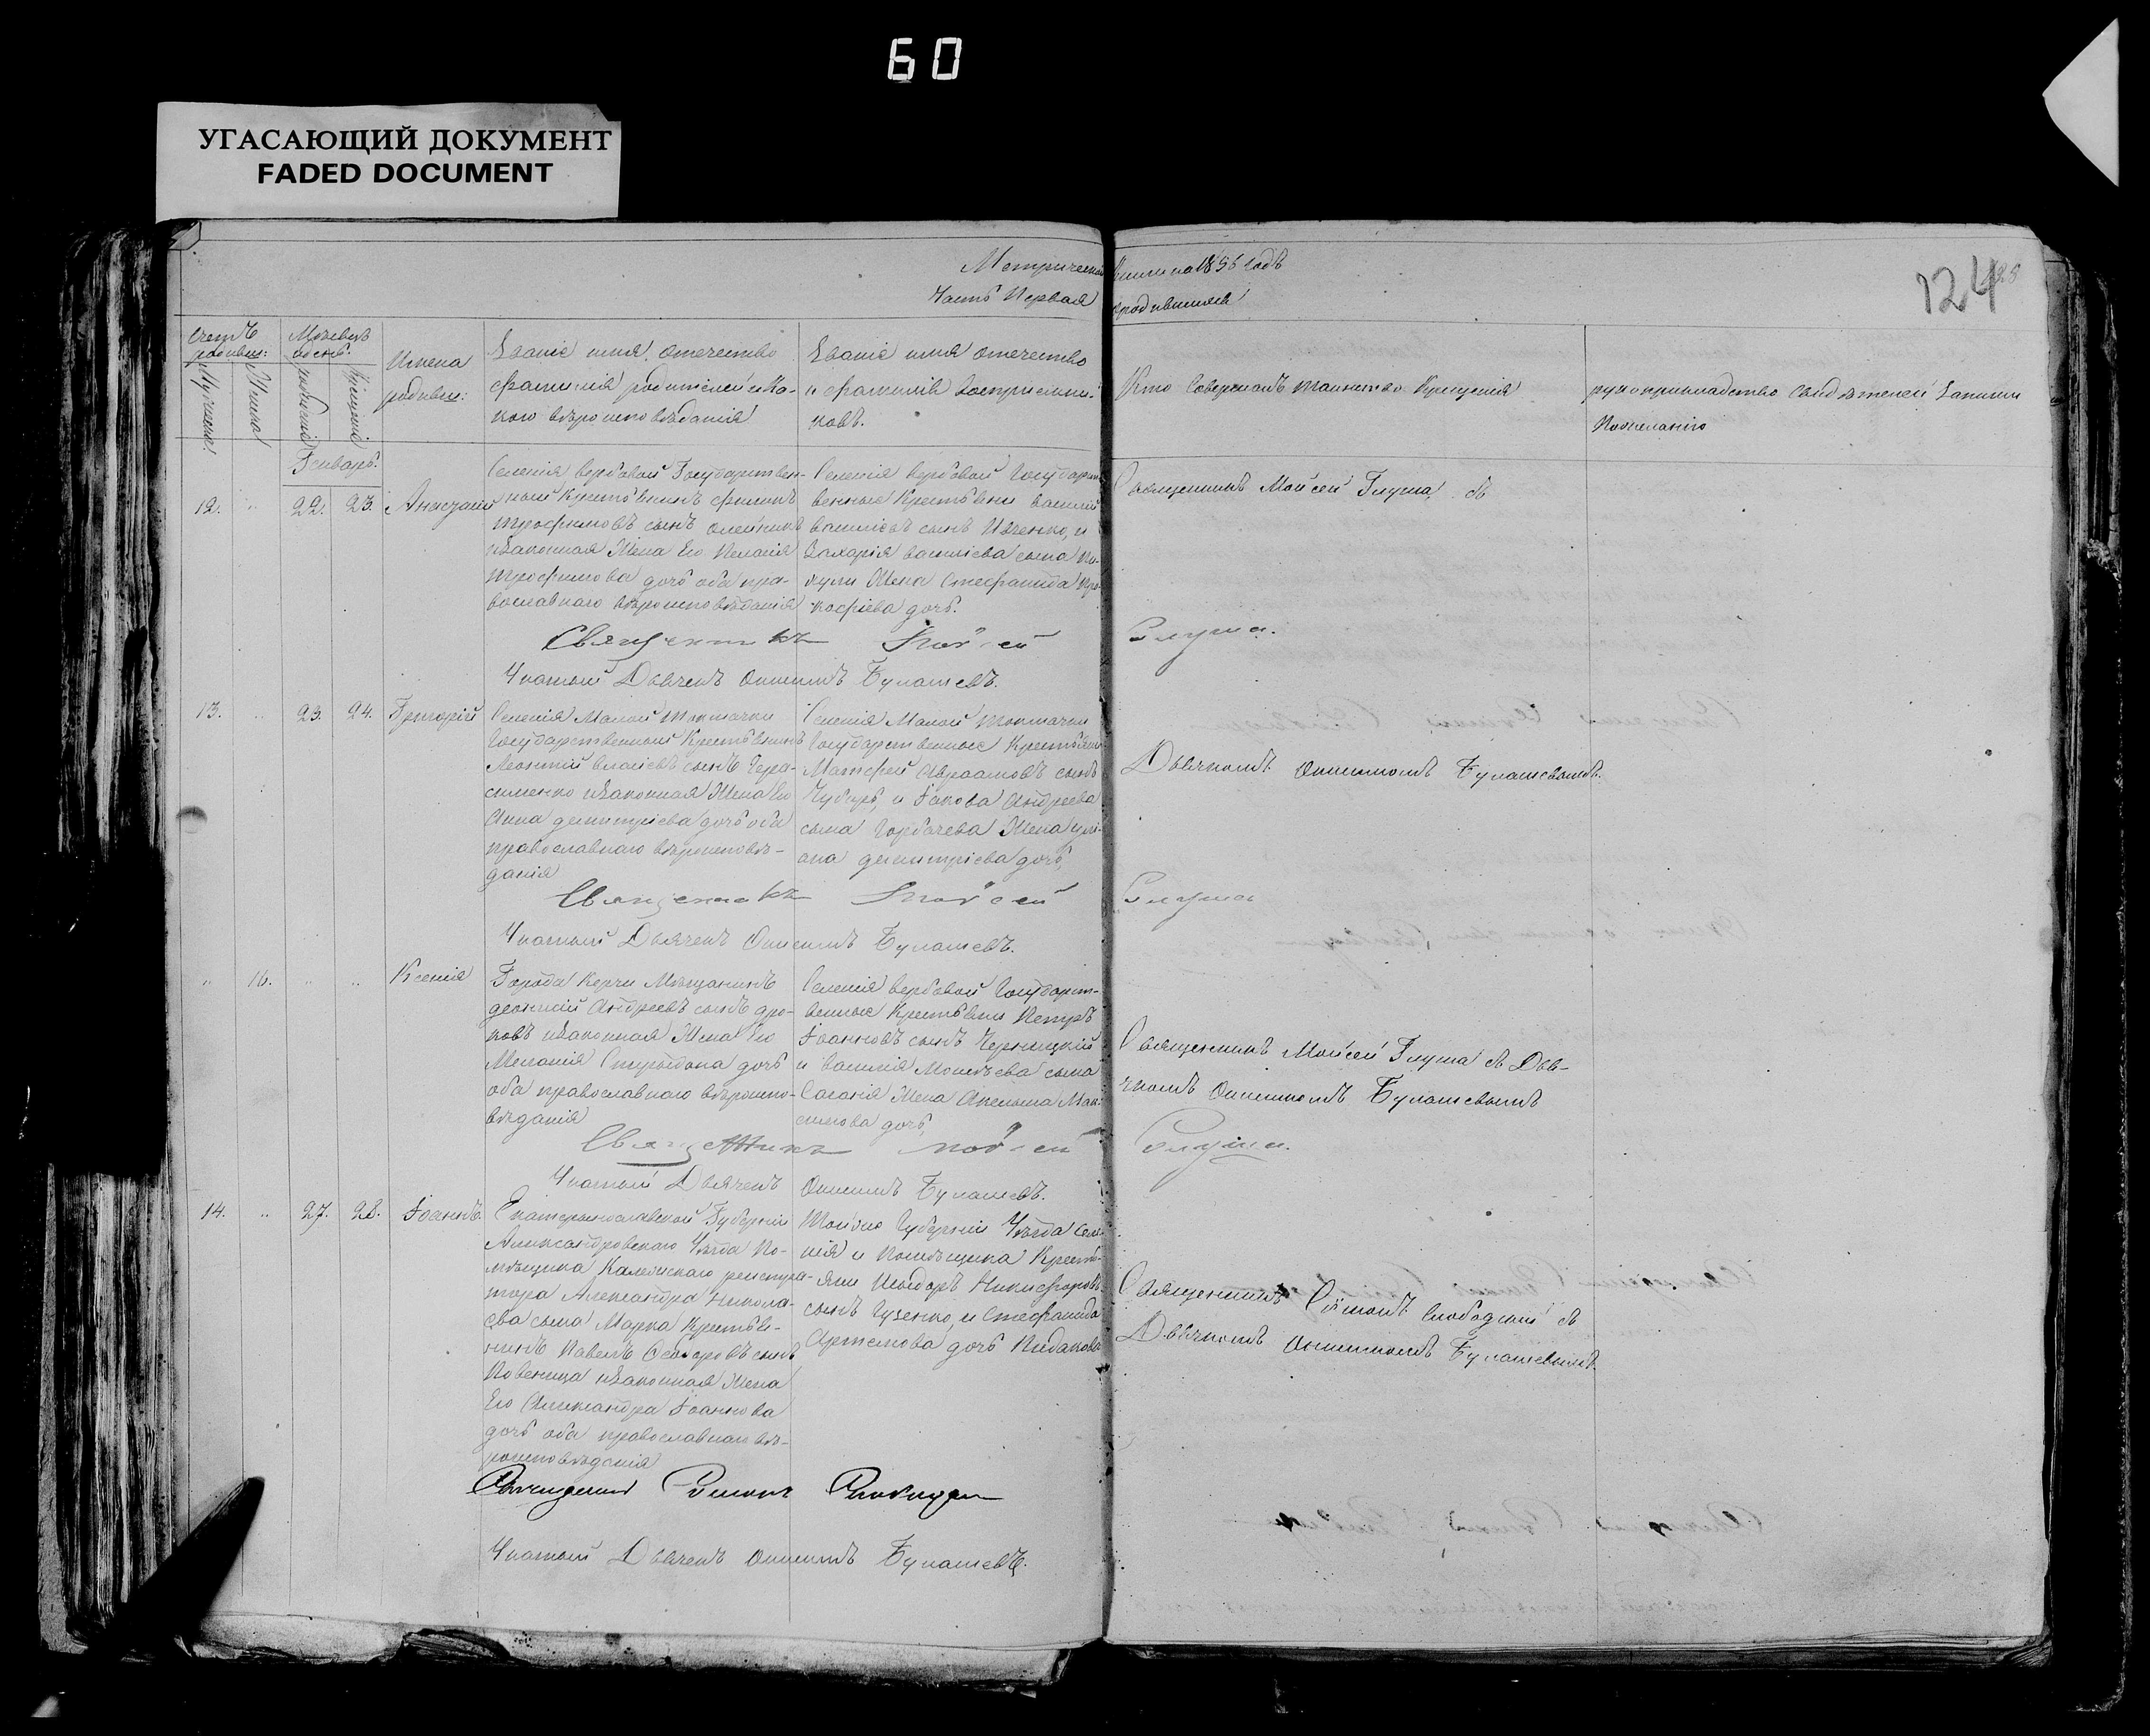 60
УГАСАЮЩИЙ ДОКУМЕНТ
FADED DOCUMENT
Метрической книги на 1856 годъ
Часть Первая о родившихся
124
Счетъ родивш:
Мужеска
Женска
Мѣсяцъ и день
рожденія
Крещенія
Имена родивш:
Званіе имя, отечество
фамилія родителей и ка-
кого вѣроисповѣданія
Званіе имя отечество
и фамилія воспріемни-
ковъ.
Кто совершалъ таинство Крещенія
рукоприкладство свидѣтелей записи
по желанію
Генварь
12. 22. 23. Анастасій
Селенія Вербовой Государствен-
ный Крестьянинъ Филипъ
Трофимовъ сынъ Олейникъ
и законная Жена Его Пелагія
Трофимова дочь оба пра-
вославного вѣроисповѣданія
Селенія Вербовой Государст-
венные Крестьяни Василій
Васильевъ сынъ Ивченко, и
Захарія Васильева сына
Жена Стефанида Про-
кофіева дочь.
Священникъ Моѵсей Глуша съ
Священникъ Моѵсей Глуша.
Дьячекъ Онисимъ Булашевъ.
13. 23. 24. Григорій
Селенія Малой Токмачки
Государственный Крестьянинъ
Леонтій Власіевъ сынъ Гера-
сименко и законная Жена Его
Анна Димитріева дочь оба
православнаго вѣроисповѣ-
данія
Селенія Малой Токмачки
Государственные Крестьяни
Матфей Авраамовъ сынъ
Чубарь, и Іакова Андреева
сына Горбачева Жена Улі-
ана Димитріева дочь,
Дьячкомъ Онисимомъ Булашевымъ.
Священникъ Моѵсей Глуша
Дьячекъ Онисимъ Булашевъ.
16. Ксенія
Города Керчи Мѣщанинъ
Леонтій Андреевъ сынъ Дро-
ковъ и законная Жена Его
Меланія Спиридона дочь
оба православнаго вѣроиспо-
вѣданія
Селенія Вербовой Государст-
венные Крестьяни Петръ
Іоанновъ сынъ Черницкій
и Василія Моисѣева сына
Жена Акелина Мак-
симова дочь,
Священникъ Моѵсей Глуша съ Дья-
чкомъ Онисимомъ Булашевымъ
Священникъ Моѵсей Глуша.
Дьячекъ Онисимъ Булашевъ.
14. 27. 28. Іоаннъ
Екатеринославской Губерніи
Александровскаго Уѣзда По-
мѣщика Калежскаго регистра-
тора Александра Никола-
ева сына Марка Крестья-
нинъ Павелъ Ѳедоровъ сынъ
и законная Жена
Его Александра Іоаннова
дочь оба православнаго вѣ-
роисповѣданія
Той же Губерніи Уѣзда Селе-
нія и Помѣщика Кресть-
яни Исидоръ Никифоровъ
сынъ Гузенко, и Стефанида
Артемова дочь
Священникъ Сѵмонъ Слободскій съ
Дьячкомъ Онисимомъ Булашевымъ.
Священникъ Сѵмонъ
Дьячекъ Онисимъ Булашевъ.